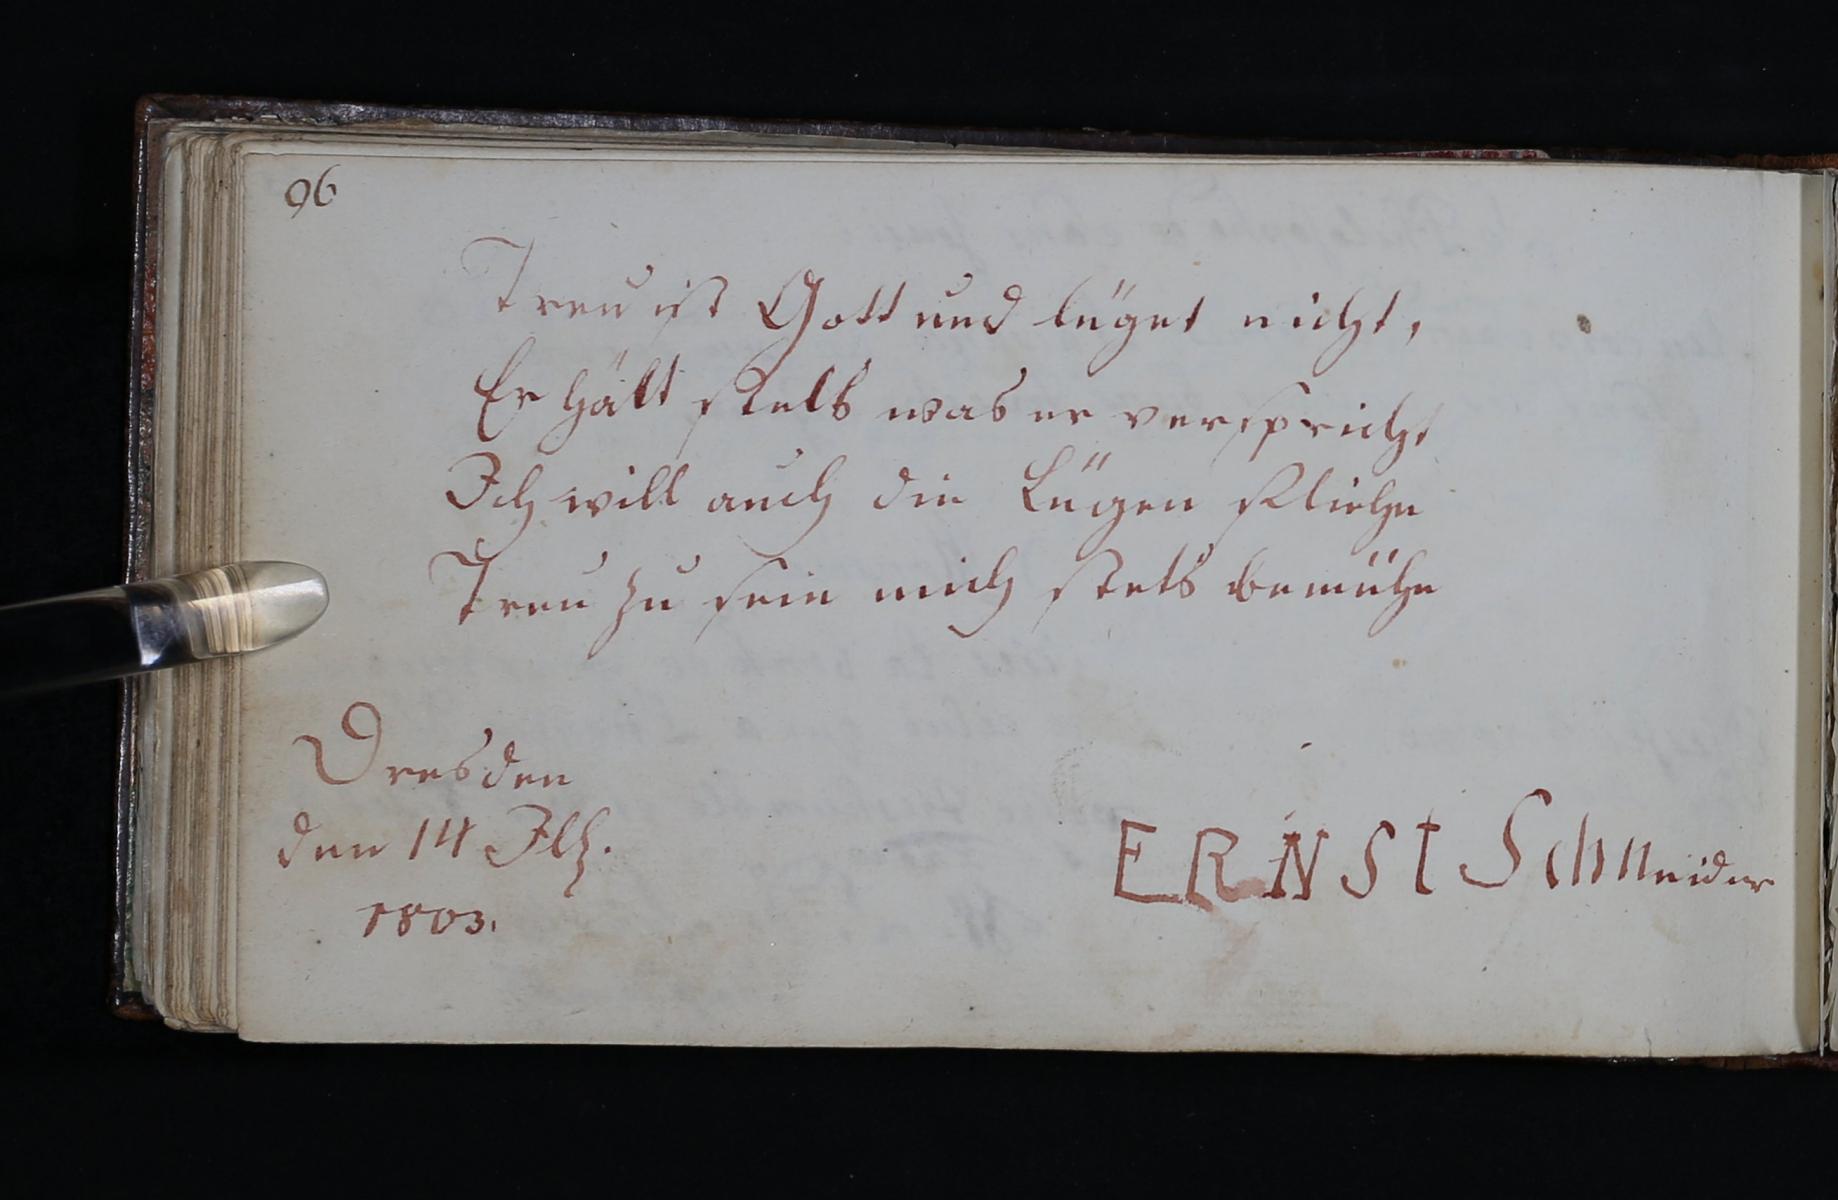 96
Treu ist Gott und lüget nicht,
Er hält stets was er verspricht
Ich will auch die Lügen fliehn
Treu zu sein mich stets bemühn
Dresden
den 14
1803.
ERNSt Schneider